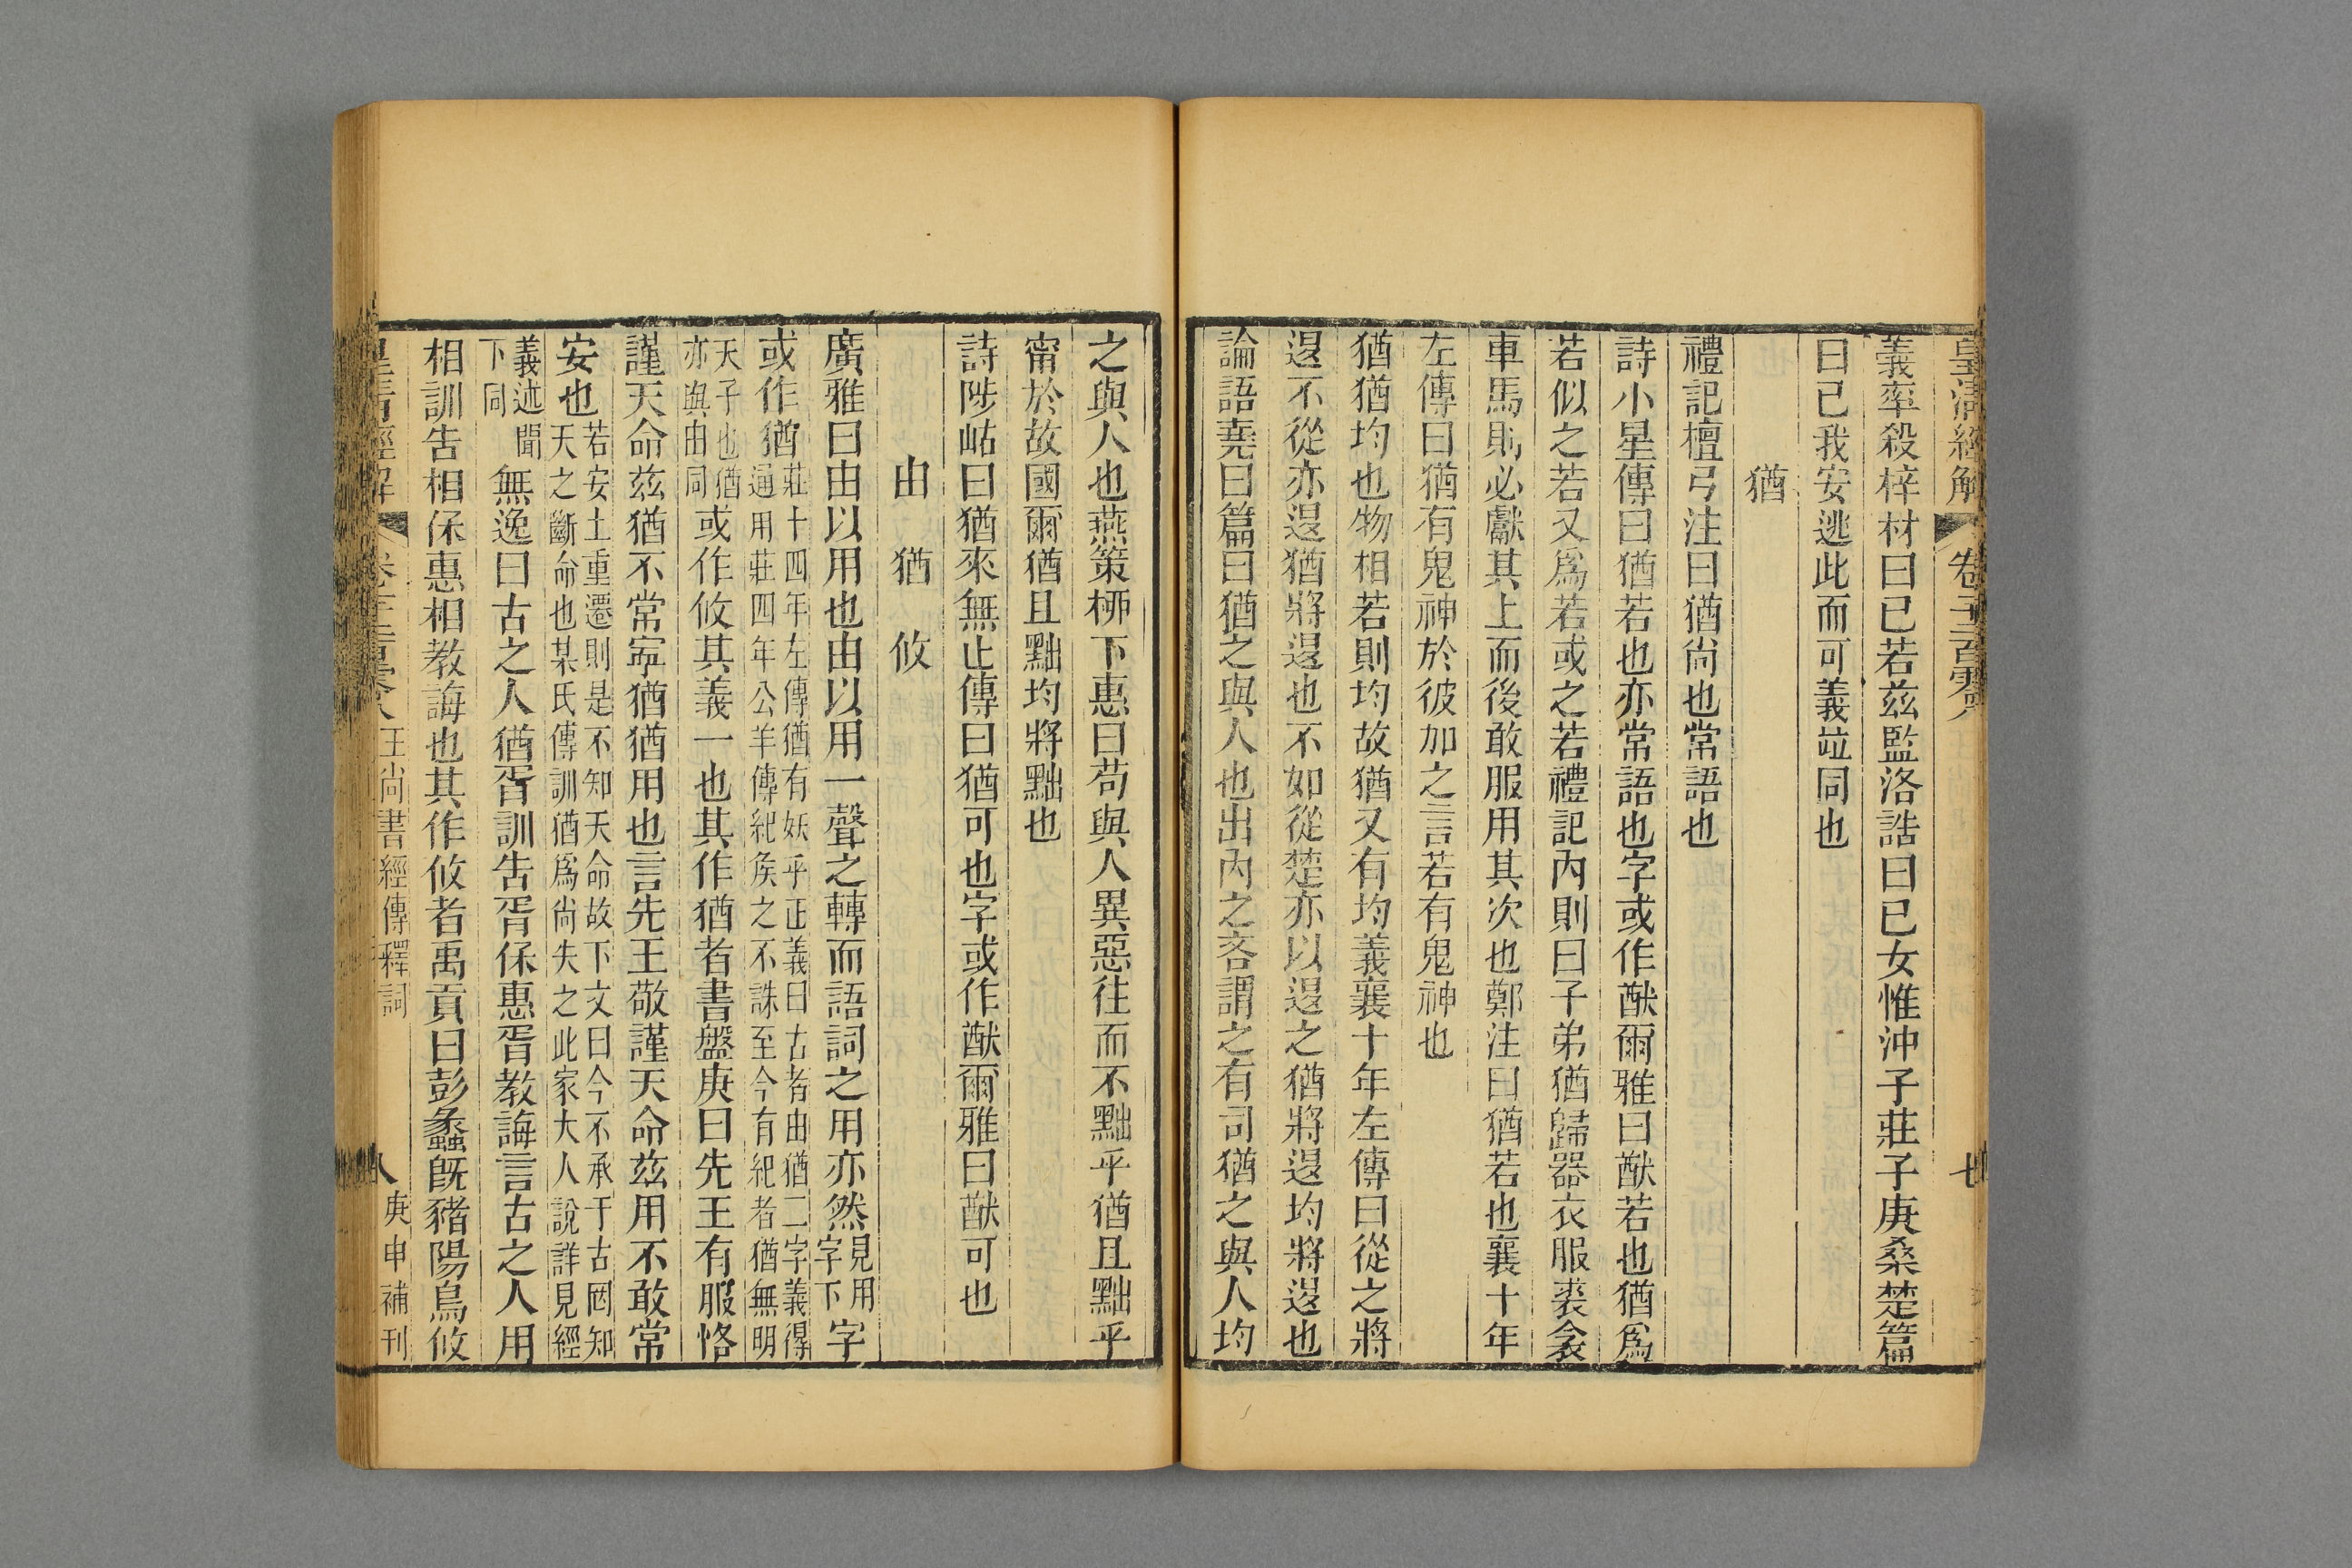 皇清經解 卷千二百零八 七
義率殺梓材曰已若茲監洛誥曰已女惟沖子莊子庚桑楚篇
曰已我安逃此而可義竝同也
猶
禮記檀弓注曰猶尙也常語也
詩小星傳曰猶若也亦常語也字或作猷爾雅曰猷若也猶爲
若似之若又爲若或之若禮記內則曰子弟猶歸器衣服裘衾
車馬則必獻其上而後敢服用其次也鄭注曰猶若也襄十年
左傳曰猶有鬼神於彼加之言若有鬼神也
猶猶均也物相若則均故猶又有均義襄十年左傳曰從之將
退不從亦退猶將退也不如從楚亦以退之猶將退均將退也
論語堯曰篇曰猶之與人也出內之吝謂之有司猶之與人均
之與人也燕策桺下惠曰苟與人異惡往而不黜乎猶且黜乎
甯於故國爾猶且黜均將黜也
詩陟岵曰猶來無止傳曰猶可也字或作猷爾雅曰猷可也
由 猶 攸
廣雅曰由以用也由以用一聲之轉而語詞之用亦然見用字字下
或作猶莊十四年左傳猶有妖乎正義曰古者由猶二字義得通用莊四年公羊傳紀侯之不誅至今有紀者猶無明
天子也猶亦與由同或作攸其義一也其作猶者書盤庚曰先王有服恪
謹天命茲猶不常寍猶猶用也言先王敬謹天命茲用不敢常
安也若安土重遷則是不知天命故下文曰今不承于古罔知天之斷命也某氏傳訓猶爲尙失之此家大人說詳見經
義述聞下同無逸曰古之人猶胥訓告胥保惠胥教誨言古之人用
相訓告相保惠相教誨也其作攸者禹貢曰彭蠡旣豬陽鳥攸
皇清經解 卷千二百零八 王尙書經傳釋詞 八 庚申補刊